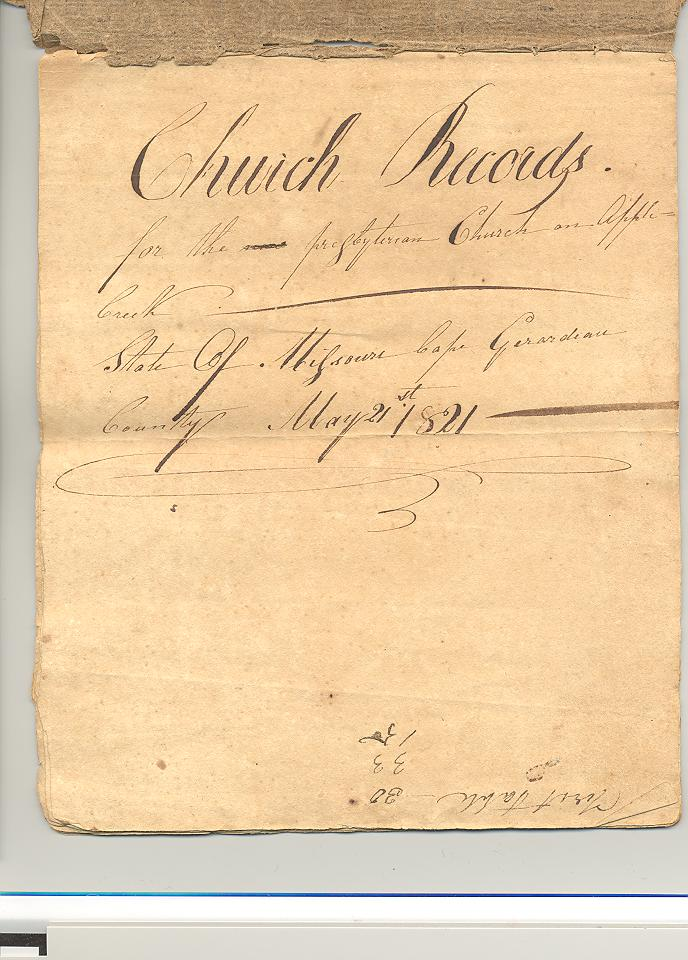 Church Records.
for the presbyterian Church on Apple=
Creek
State Of Missouri Cape Gerardeau
County May 21st 1821
First Table 30
33
15